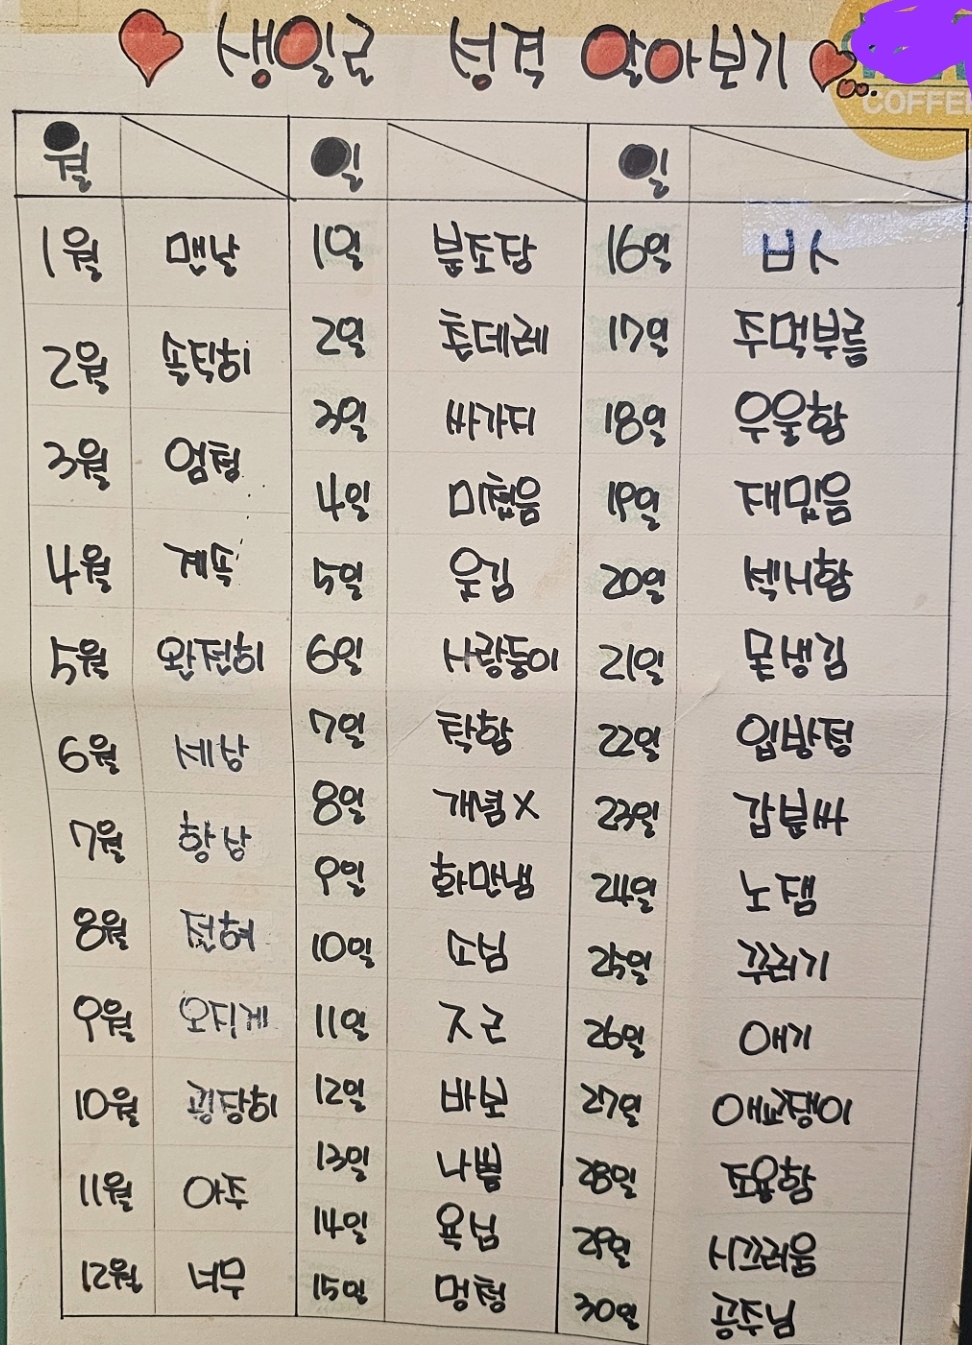 생일로 성격 알아보기
COFFEE
월 일 일
1월 맨날 1일 분조장 16일 ㅂㅅ
2월 솔직히 2일 츤데레 17일 주먹부름
3월 엄청 3일 싸가지 18일 우울함
4월 계속 4일 미쳤음 19일 재밌음
5월 완전히 5일 웃김 20일 섹시함
6월 세상 6일 사랑둥이 21일 못생김
7월 항상 7일 착함 22일 입방정
8월 전혀 8일 개념X 23일 갑분싸
9월 오지게 9일 화만냄 24일 노잼
10월 굉장히 10일 소심 25일 꾸러기
11월 아주 11일 ㅈㄹ 26일 애기
12월 너무 12일 바보 27일 애교쟁이
13일 나쁨 28일 조용함
14일 욕심 29일 시끄러움
15일 멍청 30일 공주님